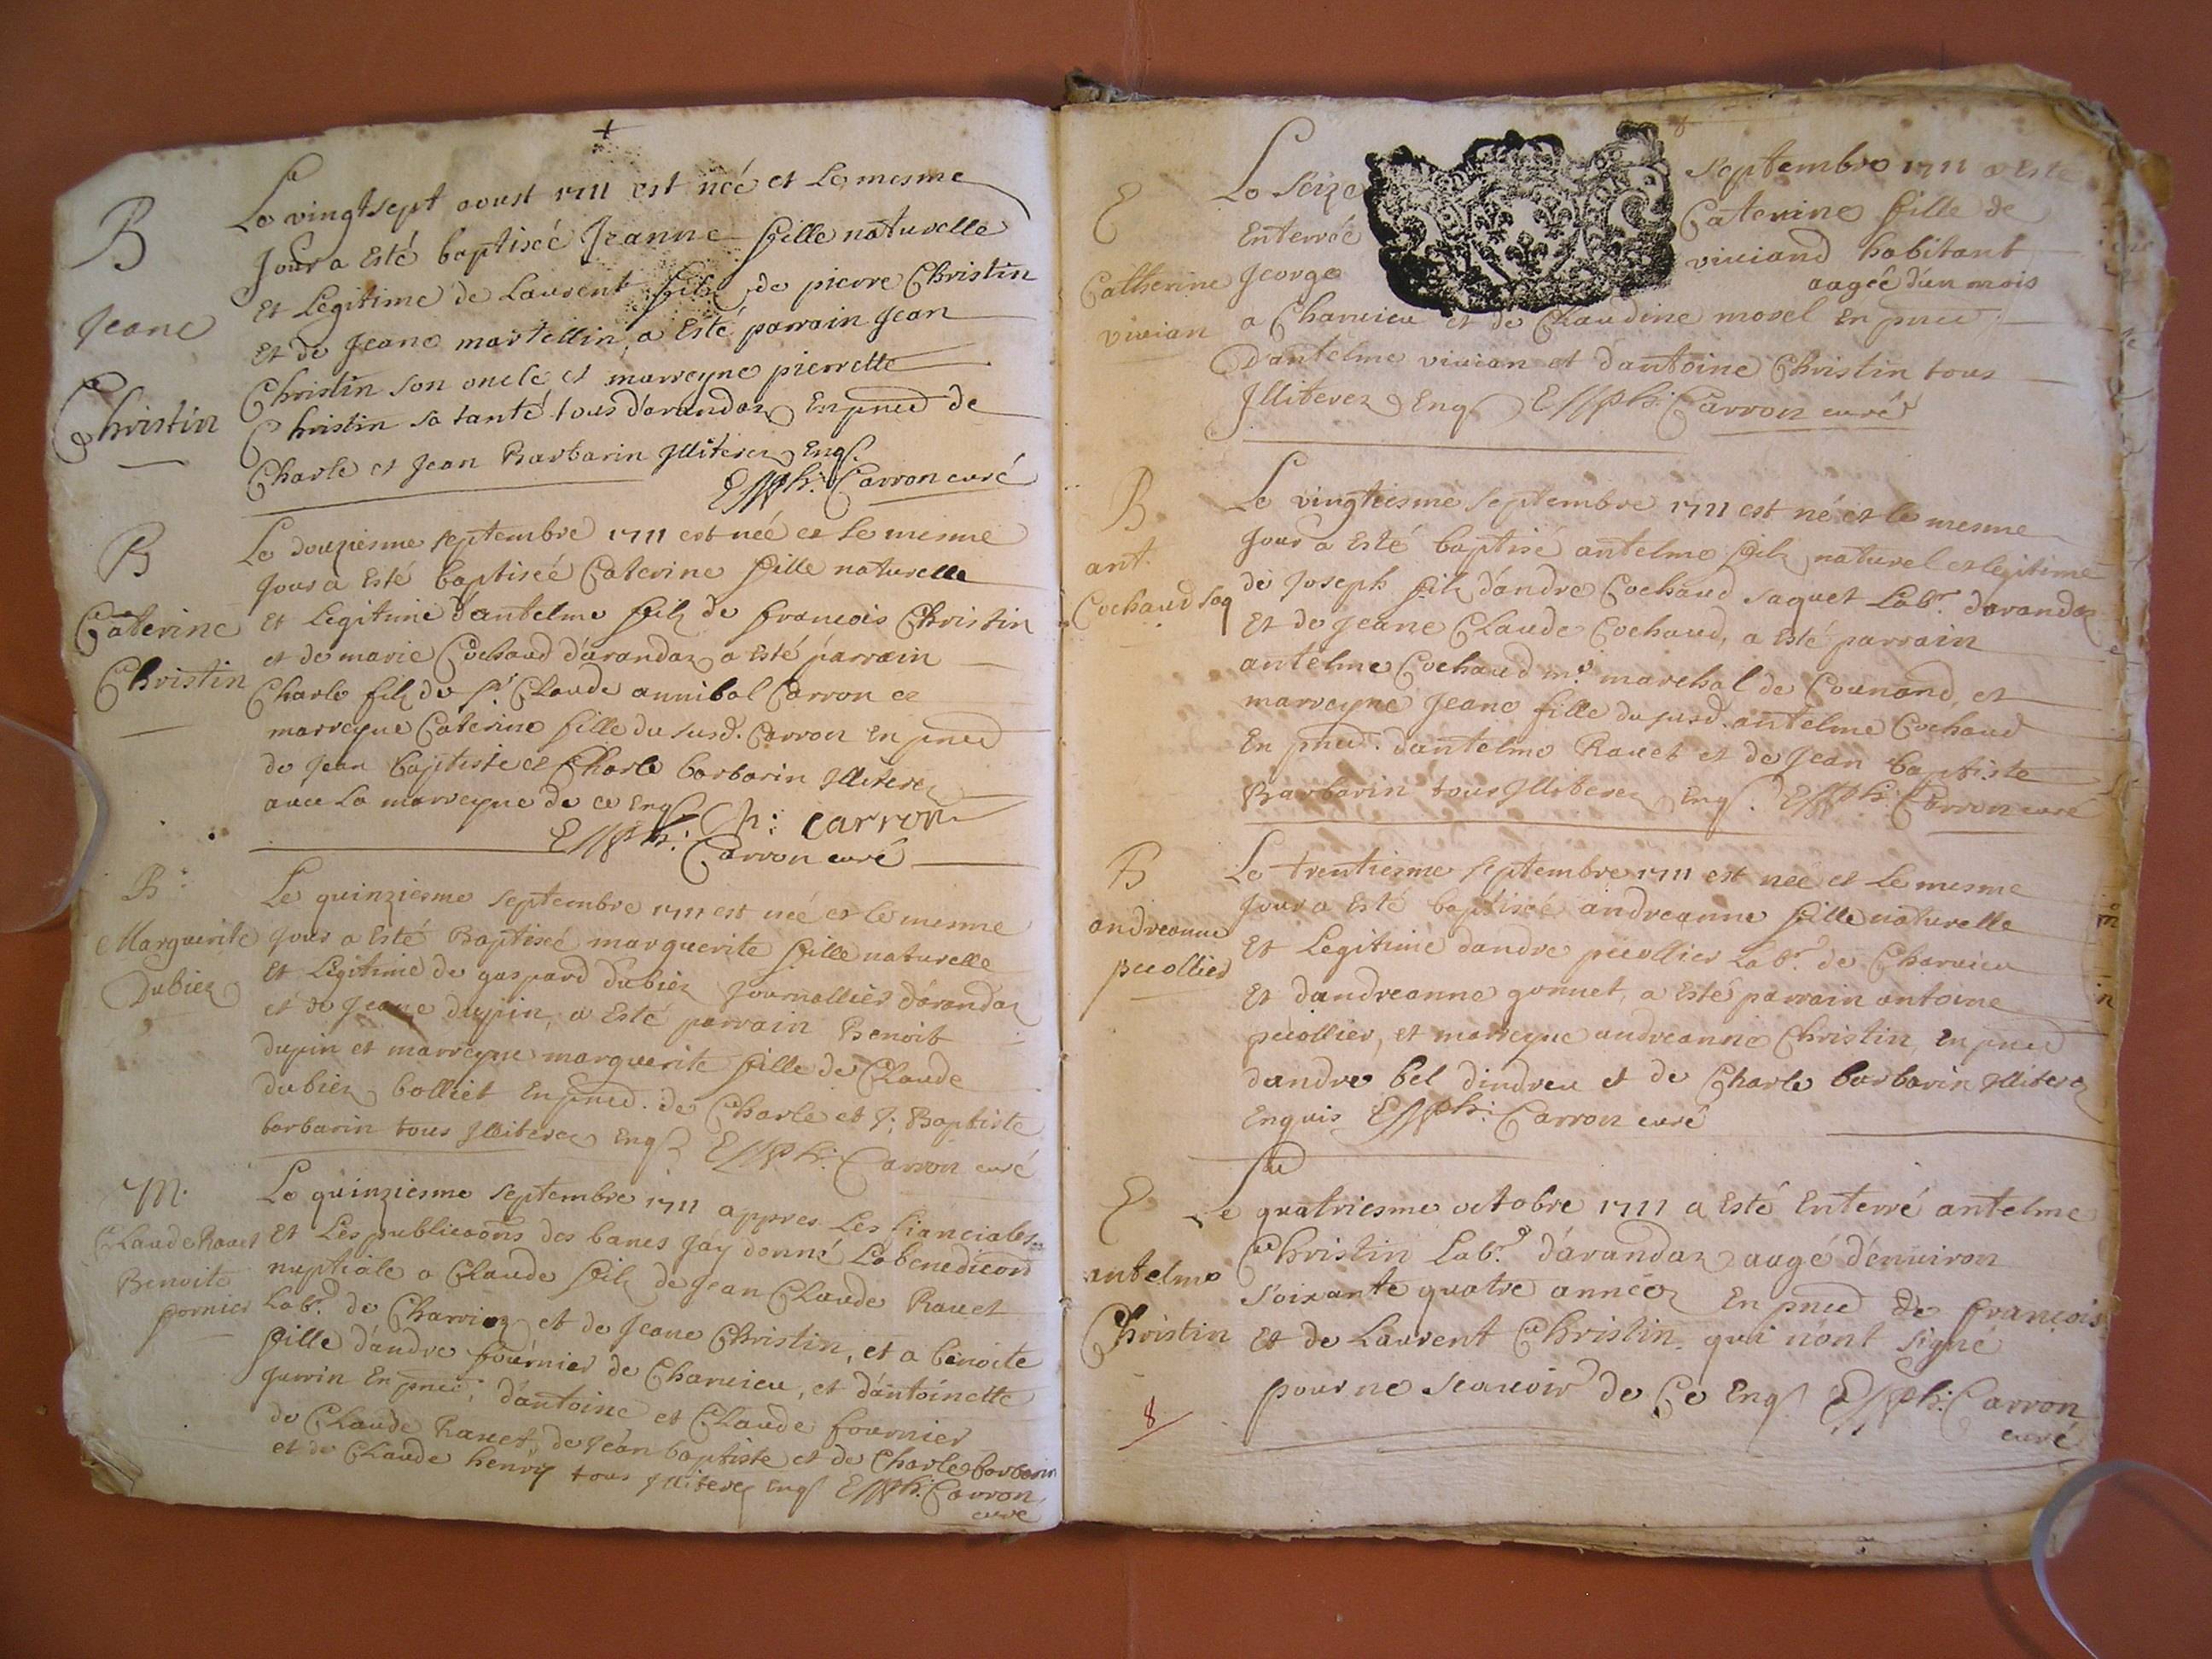 B
Jeane
Christin
Le vingt sept aoust 1711 est néé et le mesme
Jour a Esté baptiséé Jeanne fille naturelle
et Legitime de Laurent filz de pierre Christin
et de Jeane martellin, a Esté parrain Jean
Christin son oncle et marreyne pierrette
Christin sa tante tous d'arandaz En pnce de
Charle et Jean Barbarin Illiterez Enqs.
Carron curé
B
Caterine
Christin
Le douziesme septembre 1711 est néé et le mesme
Jour a Esté baptiséé Caterine fille naturelle
et Legitime d'antelme filz de francois Christin
et de marie Cochaud d'arandaz a Esté parrain
Charle filz du sr. Claude annibal Carron et
marreyne Caterine fille du susd. Carron En pnce
de Jean baptiste et Charle barbarin Illiterez
avec la marreyne de ce Enqs Ch: carron
Carron curé
B.
Marguerite
Dubiez
Le quinziesme septembre 1711 est néé et le mesme
Jour a Esté Baptiséé marguerite fille naturelle
et Legitime de gaspard dubiez Journallier d'arandaz
et de Jeane dupin, a Esté parrain Benoit
dupin et marreyne marguerite fille de Claude
dubiez bolliet En pnce. de Charle et J. Baptiste
barbarin tous Illiterez Enqs Carron curé
M.
Claude Ravet
Benoite
fornier
Le quinziesme septembre 1711 appres Les fianciales
et Les publicaons des bancs J'ay donné La benedicon
nuptiale a Claude filz de Jean Claude Ravet
Labr. de Charviez et de Jeane Christin, et a benoite
fille d'andre fournier de Charvieu, et d'antoinette
En pnce, d'antoine et Claude fournier
de Claude Ravet de Jean baptiste et de Charle barbarin
et de Claude henry tous Illiterez Enqs Carron
curé
E
Catherine
vivian
Le Seize septembre 1711 a Esté
Enterréé Caterine fille de
George viviand habitant
aagéé d'un mois
a Charvieu et de Claudine morel En pnce
D'antelme vivian et d'antoine Christin tous
Illiterez Enqs Carron curé
B.
ant.
Cochaud saq
Le vingtiesme septembre 1711 est né et le mesme
Jour a Esté baptisé antelme filz naturel et legitime
de Joseph filz d'andre Cochaud saquet Labr. d'arandaz
Et de Jeane Claude Cochaud, a Esté parrain
antelme Cochaud mr. marechal de Counand, et
marreyne Jeane fille du susd. antelme Cochaud
En pnce. d'antelme Ravet et de Jean baptiste
Barbarin tous Illiterez Enqs. Carron curé
B
andreanne
pecollier
Le trentiesme septembre 1711 est néé et le mesme
Jour a Esté baptiséé andreanne fille naturelle
Et Legitime dandre pecollier Labr. de Charvieu
Et dandreanne gonnet, a Esté parrain antoine
pecollier, et marreyne andreanne Christin, En pnce
dandre bel dindrieu et de Charle barbarin Illiterez
Enquis Carron curé
E
antelme
Christin
8
Le quatriesme octobre 1711 a Esté Enterré antelme
Christin Labr. d'arandaz aagé d'environ
soixante quatre annéez En pnce de françois
et de Laurent Christin qui n'ont signé
pour ne scavoir de Ce Enqs Carron
curé